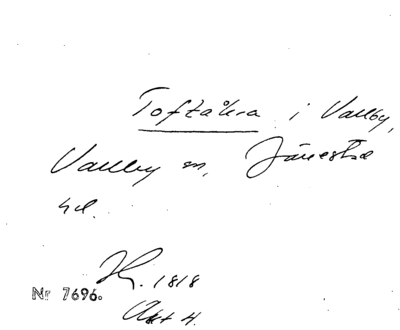 Toftåkra i Vallby,
Vallby sn, Järrestad
hd.
K. 1818
Nr 7696.
Akt 4.